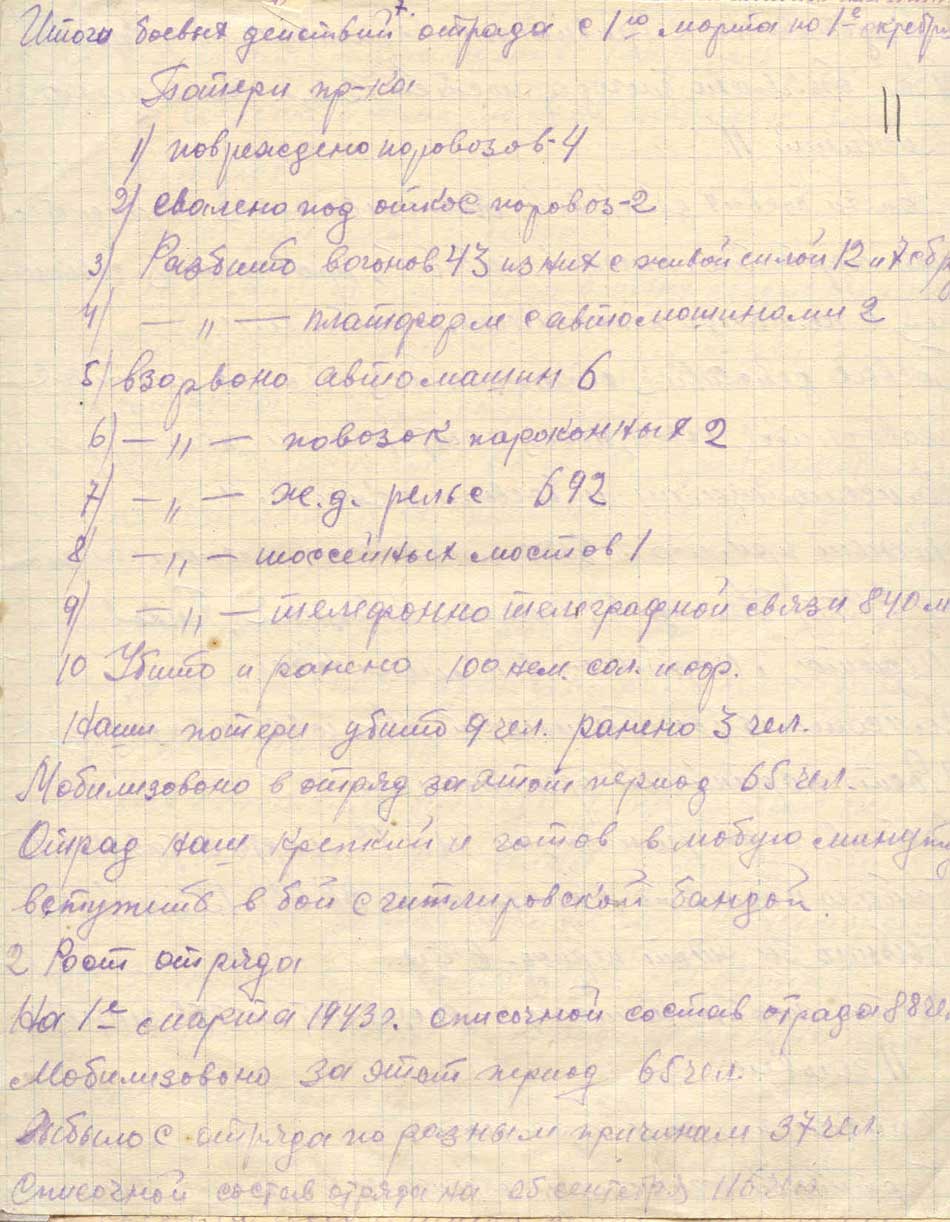 Итоги боевых действий отряда с 1го марта по 1е октября
11
Потери пр-ка
1) повреждено паровозов-4
2) свалено под откос паровоз-2
3) Разбито вагонов 43 из них с живой силой 12 и 7 с бр
4) — „ — платформ с автомашинами 2
5) взорвано автомашин 6
6) — „ — повозок пароконных 2
7) — „ — ж.д. рельс 692
8) — „ — шоссейных мостов 1
9) — „ — телефонно телеграфной связи 840 м
10 Убито и ранено 100 нем. сол. и оф.
Наши потери убито 9 чел. ранено 3 чел.
Мобилизовано в отряд за этот период 65 чел.
Отряд наш крепкий и готов в любую минуту
вступить в бой с гитлировской бандой
2 Рост отряда
На 1е марта 1943г. списочной состав отряда 88 чел
Мобилизовано за этот период 65 чел.
Выбыло с отряда по разным причинам 37 чел.
Списочной состав отряда на 25 сентября 116 чел